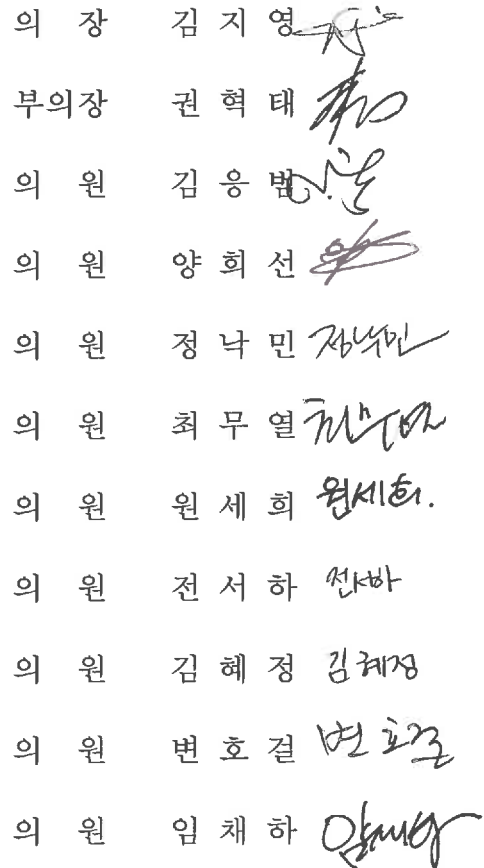 의 장 김 지 영
부의장 권 혁 태
의 원 김 응 범
의 원 양 희 선
의 원 정 낙 민 정낙민
의 원 최 무 열
의 원 원 세 희 원세희.
의 원 전 서 하 전서하
의 원 김 혜 정 김혜정
의 원 변 호 걸 변호걸
의 원 임 채 하